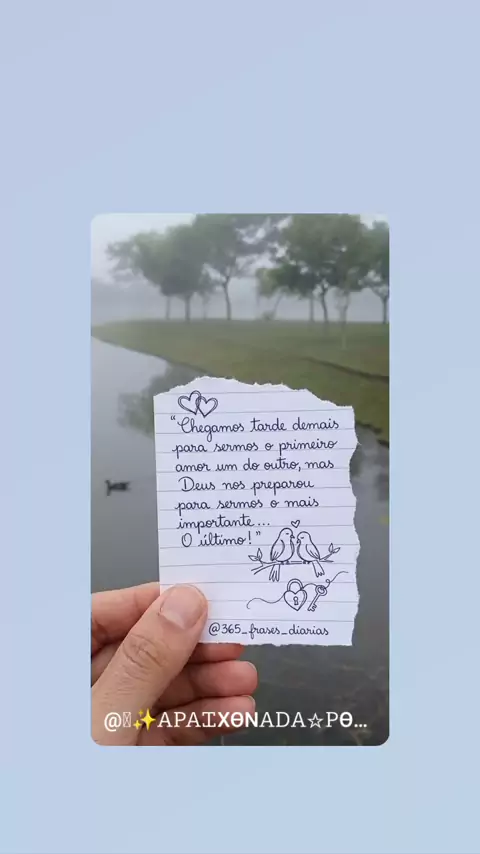 "Chegamos tarde demais
para sermos o primeiro
amor um do outro, mas
Deus nos preparou
para sermos o mais
importante...
O último!"
@365_frases_diarias
@✨APAIXΘNADA☆PΘ...